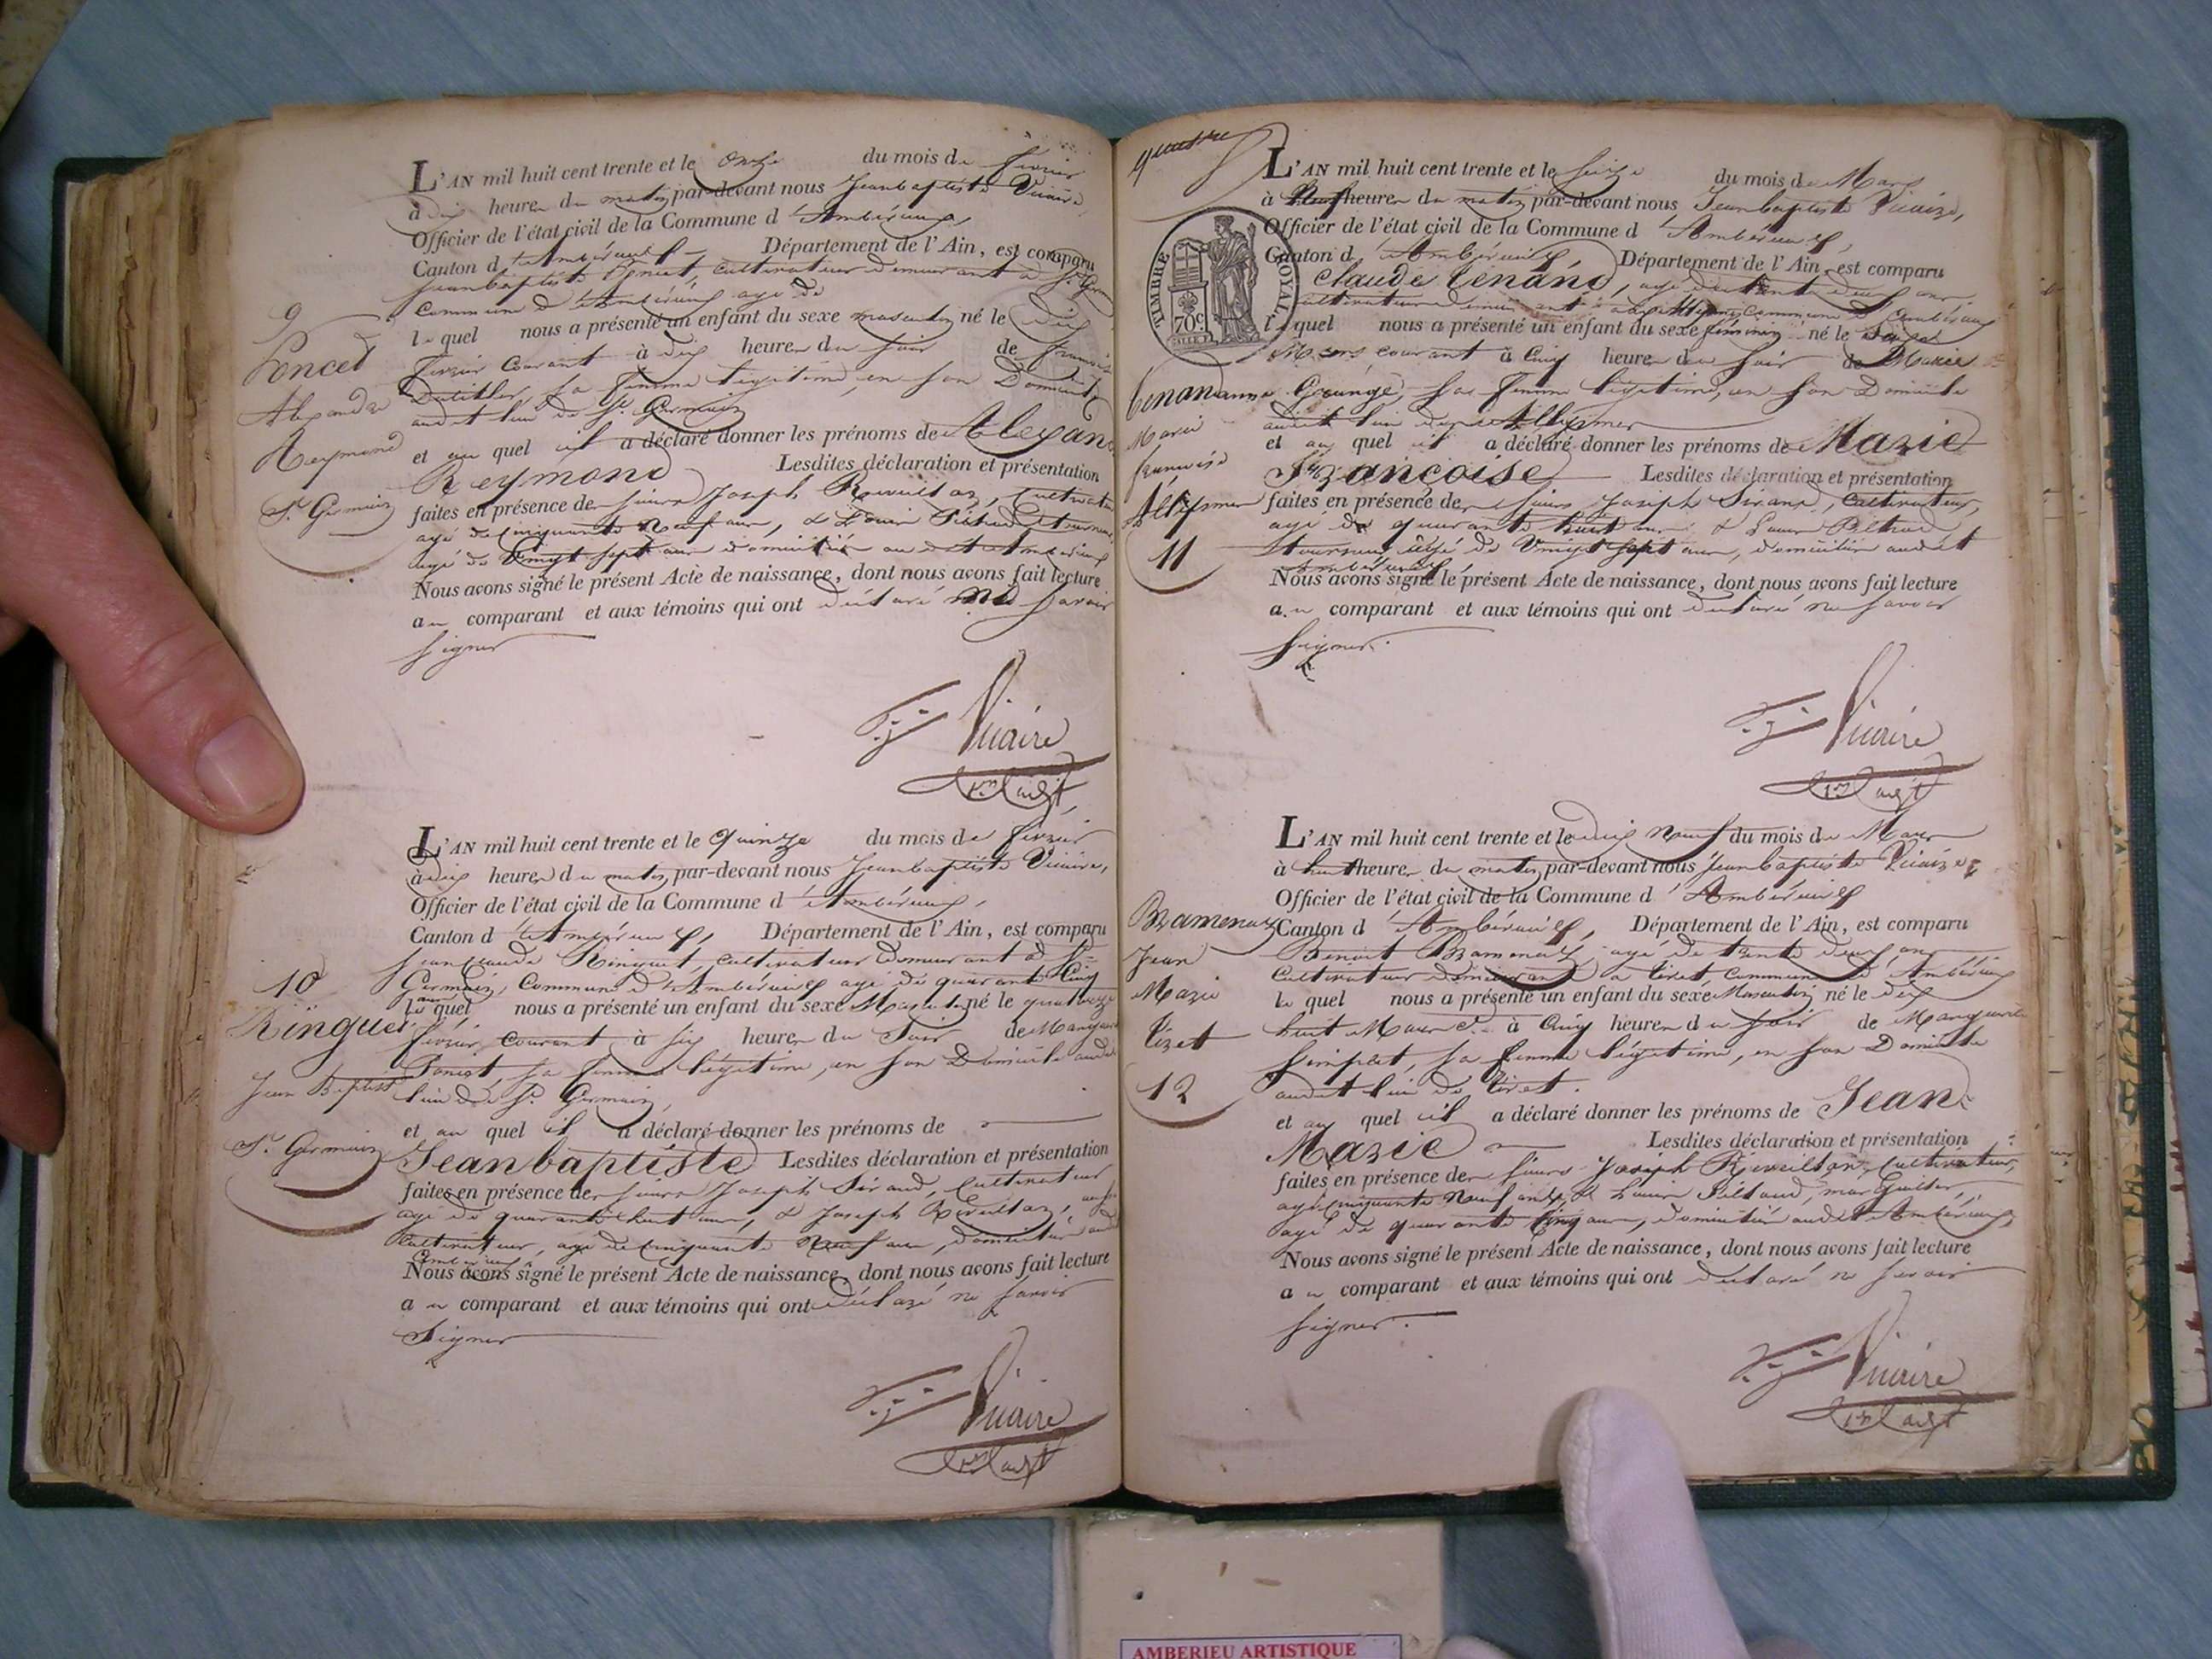 L'AN mil huit cent trente et le onze du mois de février
à dix heures du matin par-devant nous Jeanbaptiste Vicaire
Officier de l'état civil de la Commune d'Ambérieux,
Canton d'Ambérieux Département de l'Ain, est comparu
Jeanbaptiste cultivateur demeurant à St. Germain
Commune d'Ambérieux agé de
9
le quel nous a présenté un enfant du sexe masculin né le dix
Poncet
février courant à dix heures du soir de
Alexandre
sa femme légitime, en son Domicile
Reymond
audit lieu de St. Germain
et au quel il a déclaré donner les prénoms de Alexandre
Reymond Lesdites déclaration et présentation
St. Germain
faites en présence des sieurs Joseph Reveillaz, cultivateur
agé de cinquante neuf ans, & Louis
agé de Vingt sept ans domiciliés audit Ambérieux
Nous avons signé le présent Acte de naissance, dont nous avons fait lecture
au comparant et aux témoins qui ont déclaré ne savoir
signer
Vicaire
L'AN mil huit cent trente et le quinze du mois de février
à dix heures du matin par-devant nous Jeanbaptiste Vicaire,
Officier de l'état civil de la Commune d'Ambérieux,
Canton d'Ambérieux, Département de l'Ain, est comparu
Jean Claude Ringuet, cultivateur demeurant à St.
10
Germain, Commune d'Ambérieux agé de quarante cinq
ans
le quel nous a présenté un enfant du sexe Masculin né le quatorze
Ringuet
février courant à six heures du Soir de
sa femme légitime, en son Domicile audit
Jean Baptiste
lieu de St. Germain,
et au quel il a déclaré donner les prénoms de
St. Germain
Jeanbaptiste Lesdites déclaration et présentation
faites en présence des sieurs Joseph Sirand, Cultivateur
agé de quarante huit ans, & Joseph Reveillaz, aussi
Cultivateur, agé de cinquante neuf ans, domiciliés audit
Ambérieux
Nous avons signé le présent Acte de naissance, dont nous avons fait lecture
au comparant et aux témoins qui ont déclaré ne savoir
Signer
Vicaire
quatre
TIMBRE ROYAL
70c
L'AN mil huit cent trente et le seize du mois de Mars
à Neuf heures du matin par-devant nous Jeanbaptiste Vicaire,
Officier de l'état civil de la Commune d'Ambérieux,
Canton d'Ambérieux, Département de l'Ain, est comparu
Claude Tenand, agé de trente deux ans
cultivateur demeurant à Commune d'Ambérieux
le quel nous a présenté un enfant du sexe féminin né le
Mars courant à cinq heures du soir de Marie
Tenand
anne sa femme légitime, en son Domicile
Marie
audit lieu des Allymes
et au quel il a déclaré donner les prénoms de Marie
françoise
Françoise Lesdites déclaration et présentation
Allymes
faites en présence des sieurs Joseph Sirand, cultivateur,
agé de quarante huit ans & Louis
11
agé de Vingt sept ans, domiciliés audit
Ambérieux,
Nous avons signé le présent Acte de naissance, dont nous avons fait lecture
au comparant et aux témoins qui ont déclaré ne savoir
signer.
Vicaire
L'AN mil huit cent trente et le dix Neuf du mois de Mars
à huit heures du matin par-devant nous Jeanbaptiste Vicaire,
Officier de l'état civil de la Commune d'Ambérieux
Bramenaz
Canton d'Ambérieux, Département de l'Ain, est comparu
Jean
Benoit Bramenaz, agé de trente deux ans
Cultivateur demeurant à Tiret, commune d'Ambérieux
Marie
le quel nous a présenté un enfant du sexe Masculin né le dix
Tiret
huit Mars à cinq heures du soir de Marguerite
sa femme légitime, en son Domicile
12
audit lieu de Tiret.
et au quel il a déclaré donner les prénoms de Jean
Marie Lesdites déclaration et présentation
faites en présence des sieurs Joseph Reveillaz, Cultivateur,
agé cinquante Neuf ans, & Louis
agé de quarante cinq ans, domiciliés audit Ambérieux,
Nous avons signé le présent Acte de naissance, dont nous avons fait lecture
au comparant et aux témoins qui ont déclaré ne savoir
signer.
Vicaire
AMBERIEU ARTISTIQUE